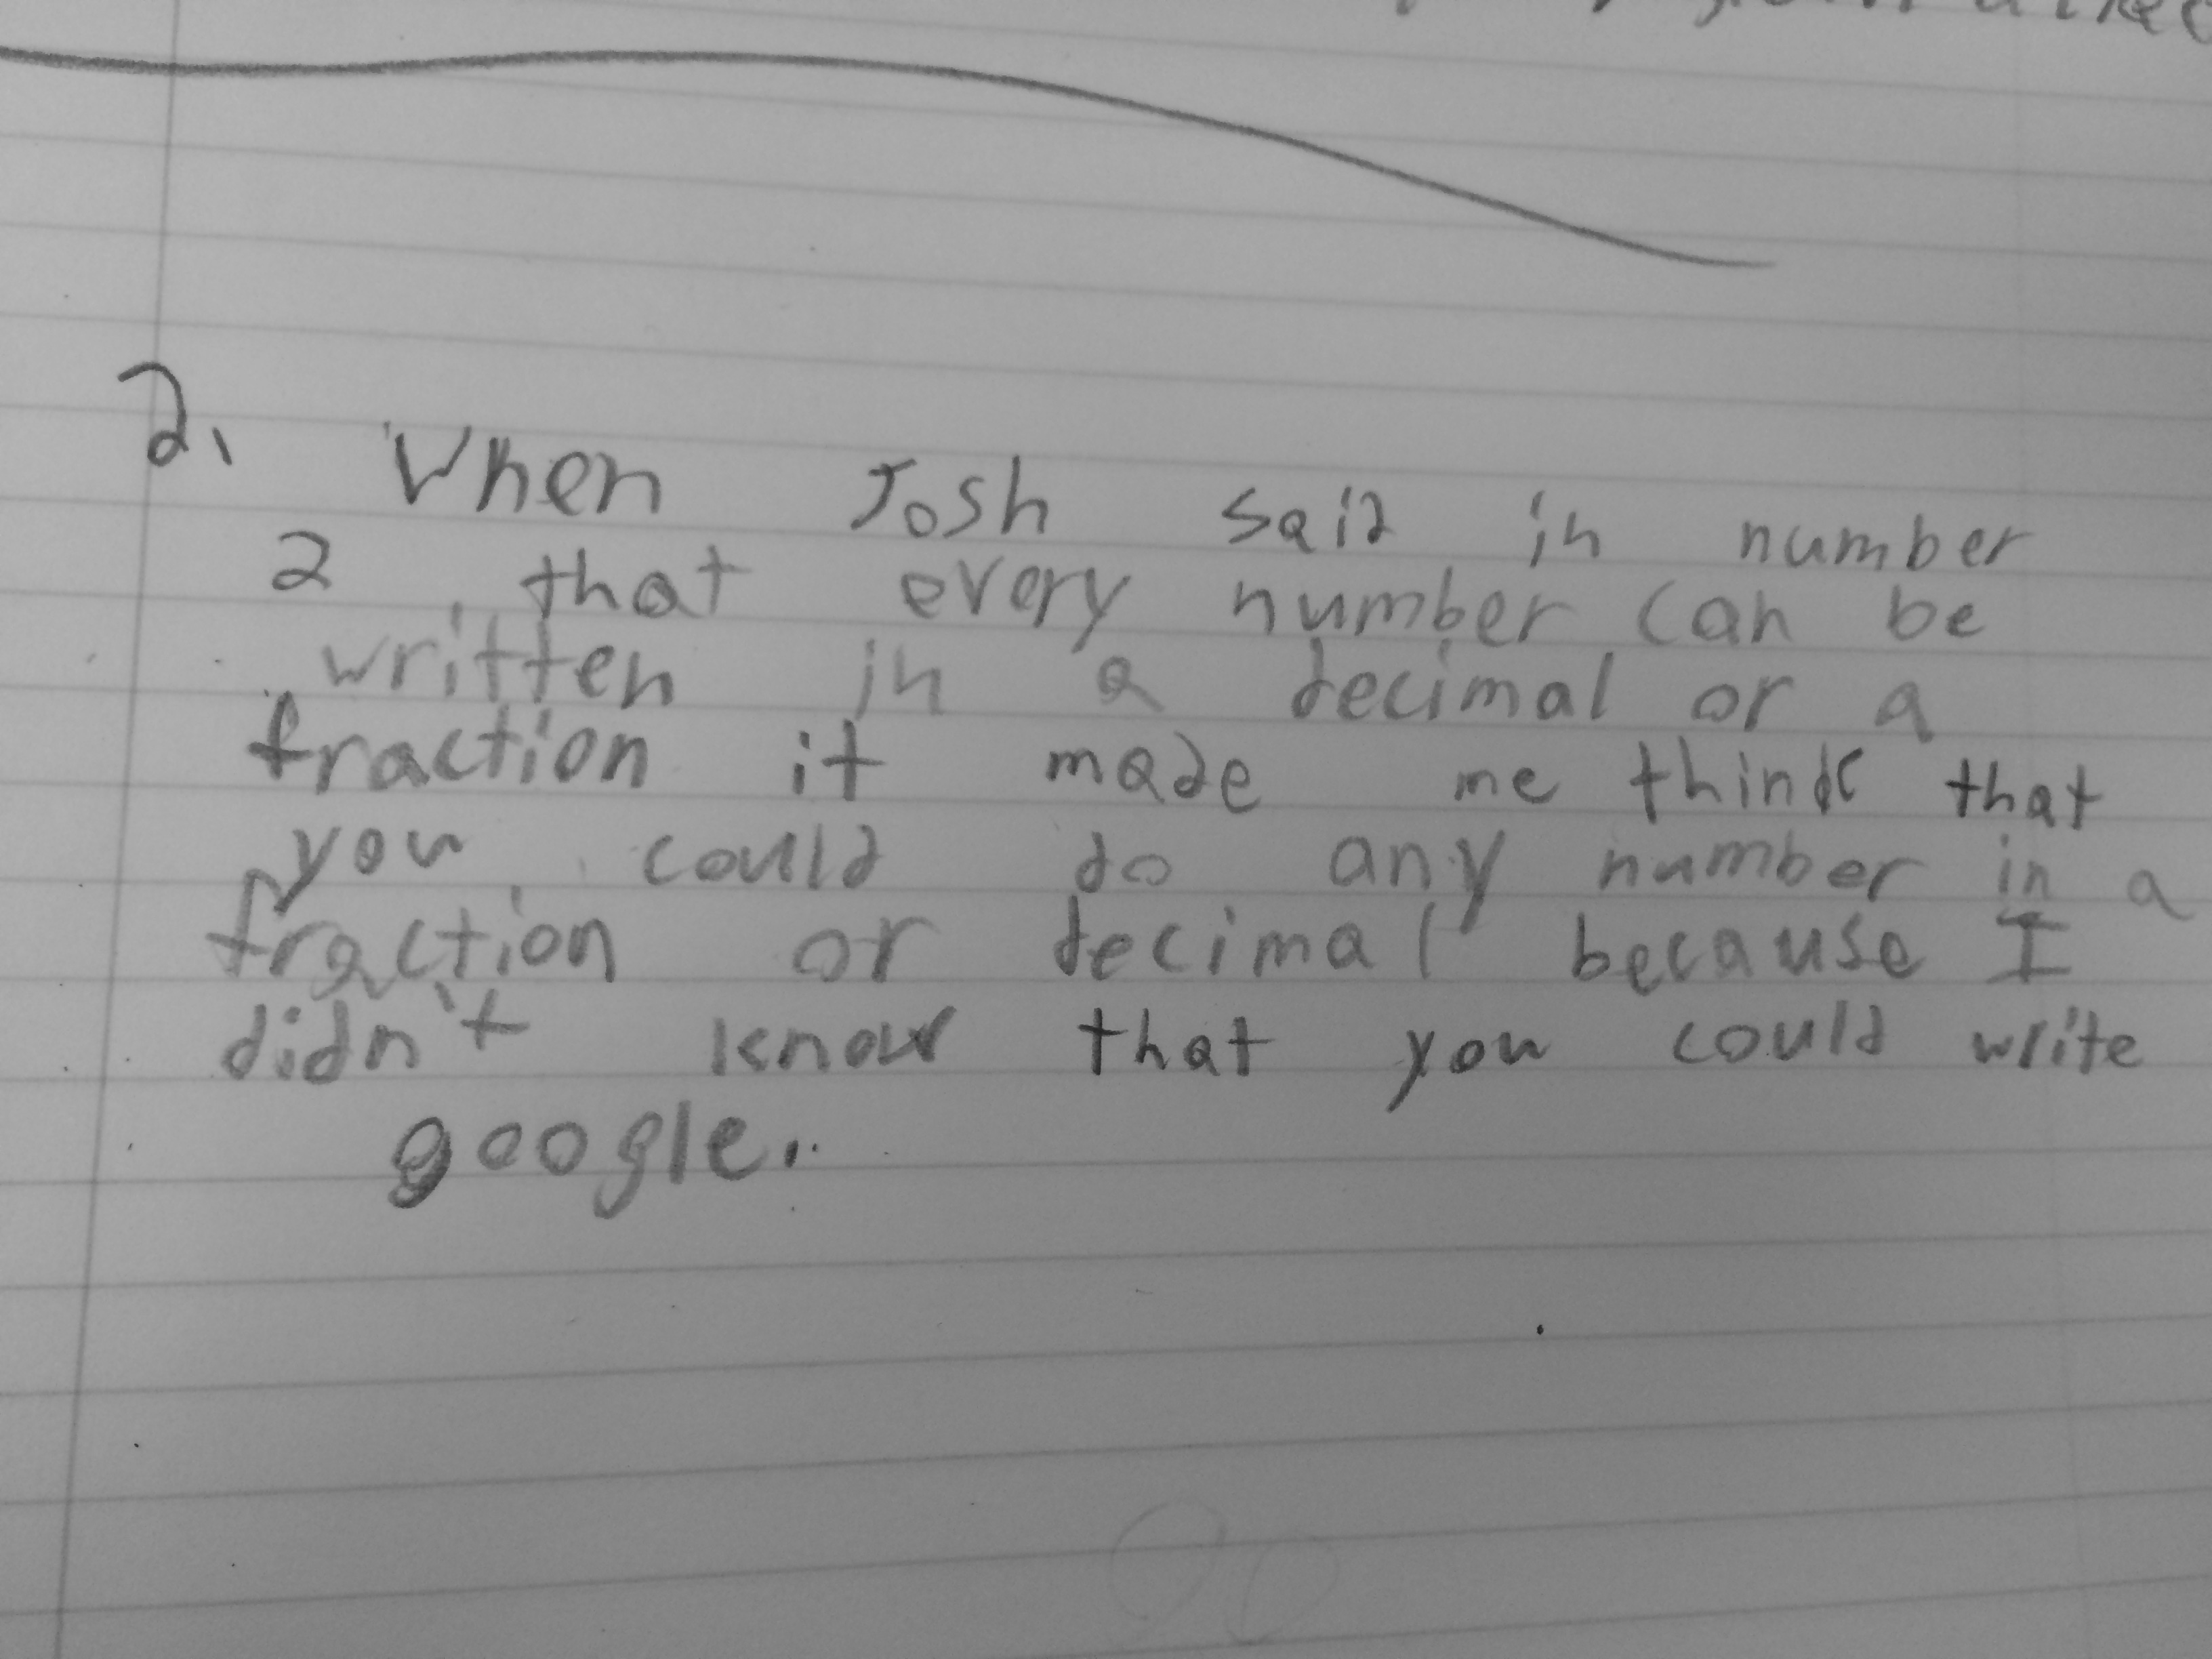 2. When Josh said in number
2 that every number can be
written in a decimal or a
fraction it made me think that
you could do any number in a
fraction or decimal because I
didn't know that you could write
google.